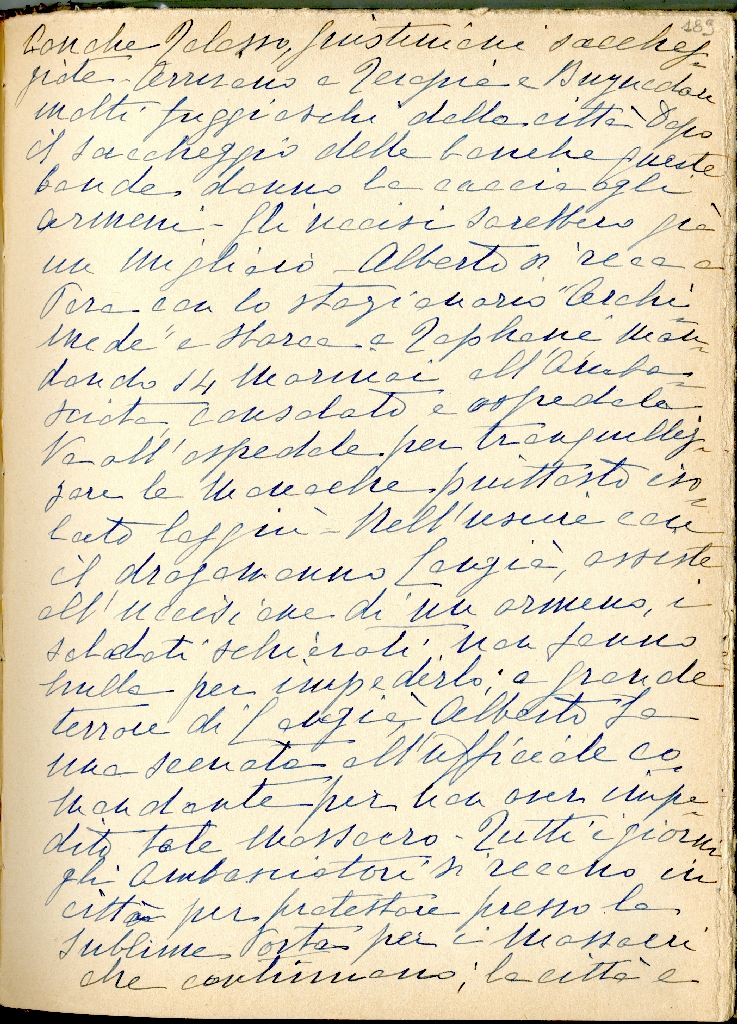 189
Banche Tolosso, Giustiniani saccheg-
giate - Arrivano a Terapia e Bujucdere
molti fuggiaschi dalla città Dopo
il saccheggio delle banche queste
bande danno la caccia agli
armeni - Gli uccisi sarebbero già
un migliaio - Alberto si reca a
Pera con lo stazionario "Archi-
mede" e sbarca a Tophané man-
dando 14 marinai all'Amba-
sciata, consolato e ospedale
Va all'ospedale per tranquilliz-
zare le monache piuttosto iso-
late laggiù - Nell'uscire con
il dragomanno Cangià, assiste
all'uccisione di un armeno, i
soldati schierati, non fanno
nulla per impedirlo; a grande
terrore di Cangià Alberto fa
una scenata all'ufficiale co-
mandante per non aver impe-
dito tale massacro - Tutti i giorni
gli ambasciatori si recano in
città per protestare presso la
Sublime Porta per i massacri
che continuano; la città e